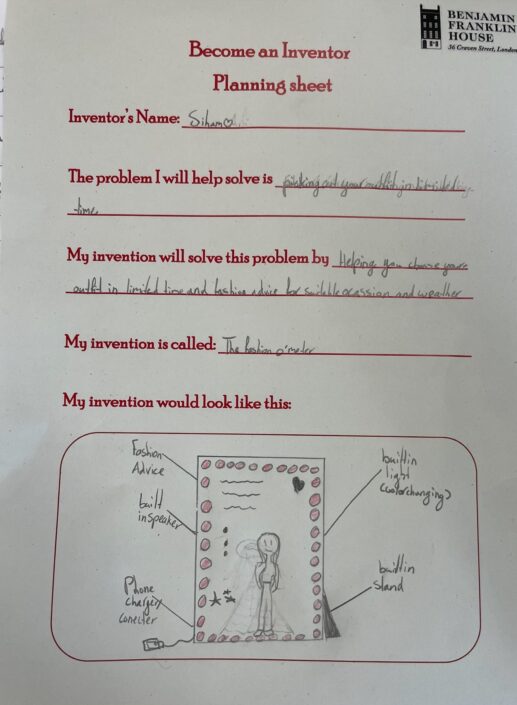 BENJAMIN
FRANKLIN
HOUSE
36 Craven Street, London
Become an Inventor
Planning sheet
Inventor's Name: Siham
The problem I will help solve is picking out your outfit in limited
time.
My invention will solve this problem by Helping you choose your
outfit in limited time and fashion advice for suitable ocassion and weather
My invention is called: The fashion o'meter
My invention would look like this:
Fashion
Advice
built
in speaker
Phone
charger/
conecter
built in
light
(color changing)
built in
stand